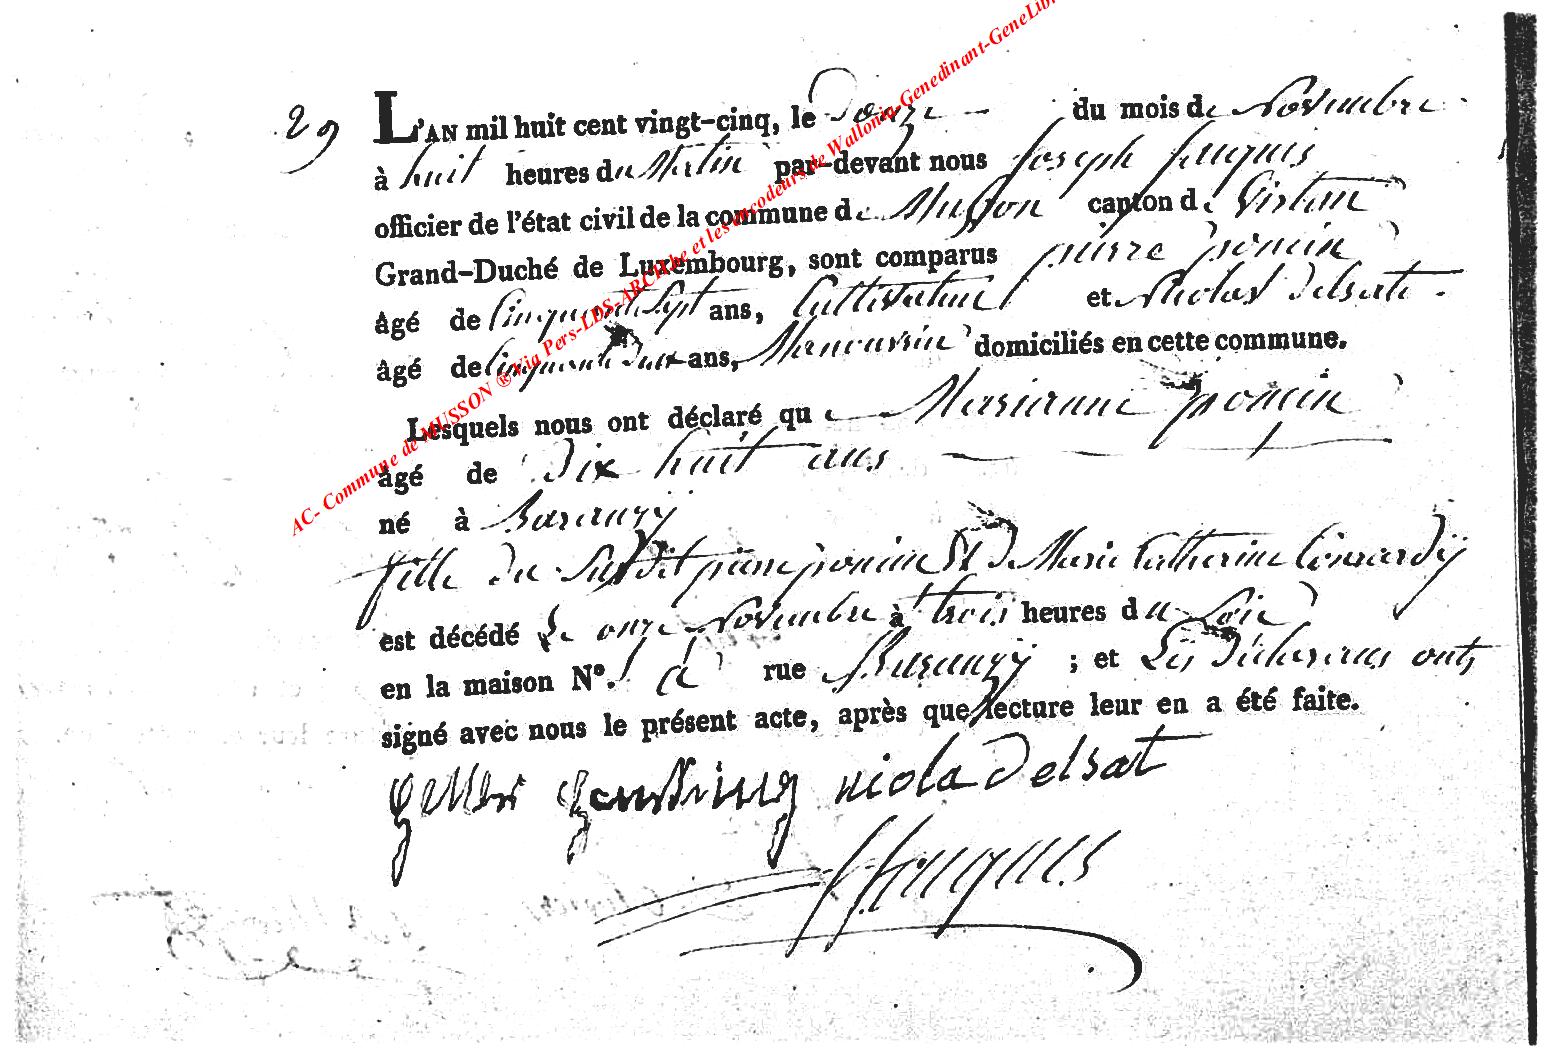 29
L'AN mil huit cent vingt-cinq, le Douze du mois de Novembre
à huit heures du Matin par-devant nous Joseph Jacquis
officier de l'état civil de la commune de Musson canton de Virton
Grand-Duché de Luxembourg, sont comparus pierre poncin
âgé de Cinquante Sept ans, Cultivateur et Nicolas Delsate
âgé de Cinquante Deux ans, Manouvrier domiciliés en cette commune.
Lesquels nous ont déclaré que Marianne poncin
âgé de Dix huit ans
né à Baranzy
fille du Susdit pierre poncin Et De Marie Catherine Conrardÿ
est décédé Le onze Novembre à trois heures du Soir
en la maison N°. à rue Baranzy ; et Les Déclarans onts
signé avec nous le présent acte, après que lecture leur en a été faite.
nicola Delsat
AC- Commune de MUSSON ® via Pers-LDS-ARCH.be et les encodeurs de Wallonia-Genedinant-GeneLib